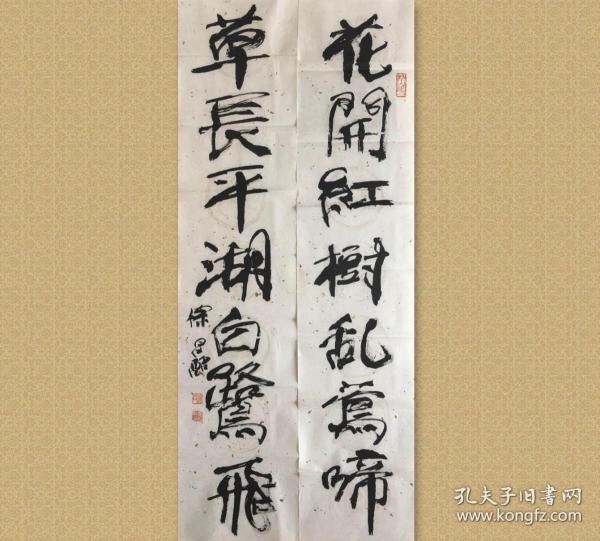 花開紅樹乱鶯啼
草長平湖白鷺飛
孔夫子旧书网
www.kongfz.com